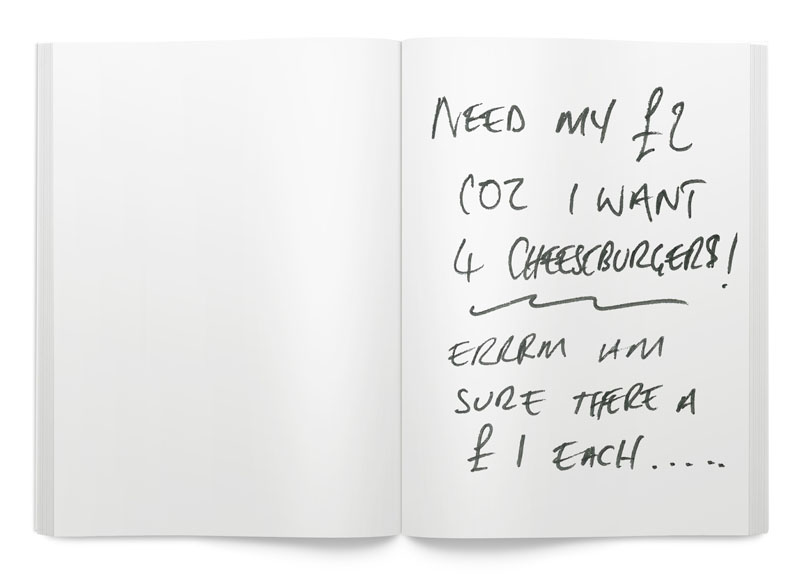 NEED MY £2
COZ I WANT
4 CHEESEBURGERS!
ERRRM AM
SURE THERE A
£1 EACH.....